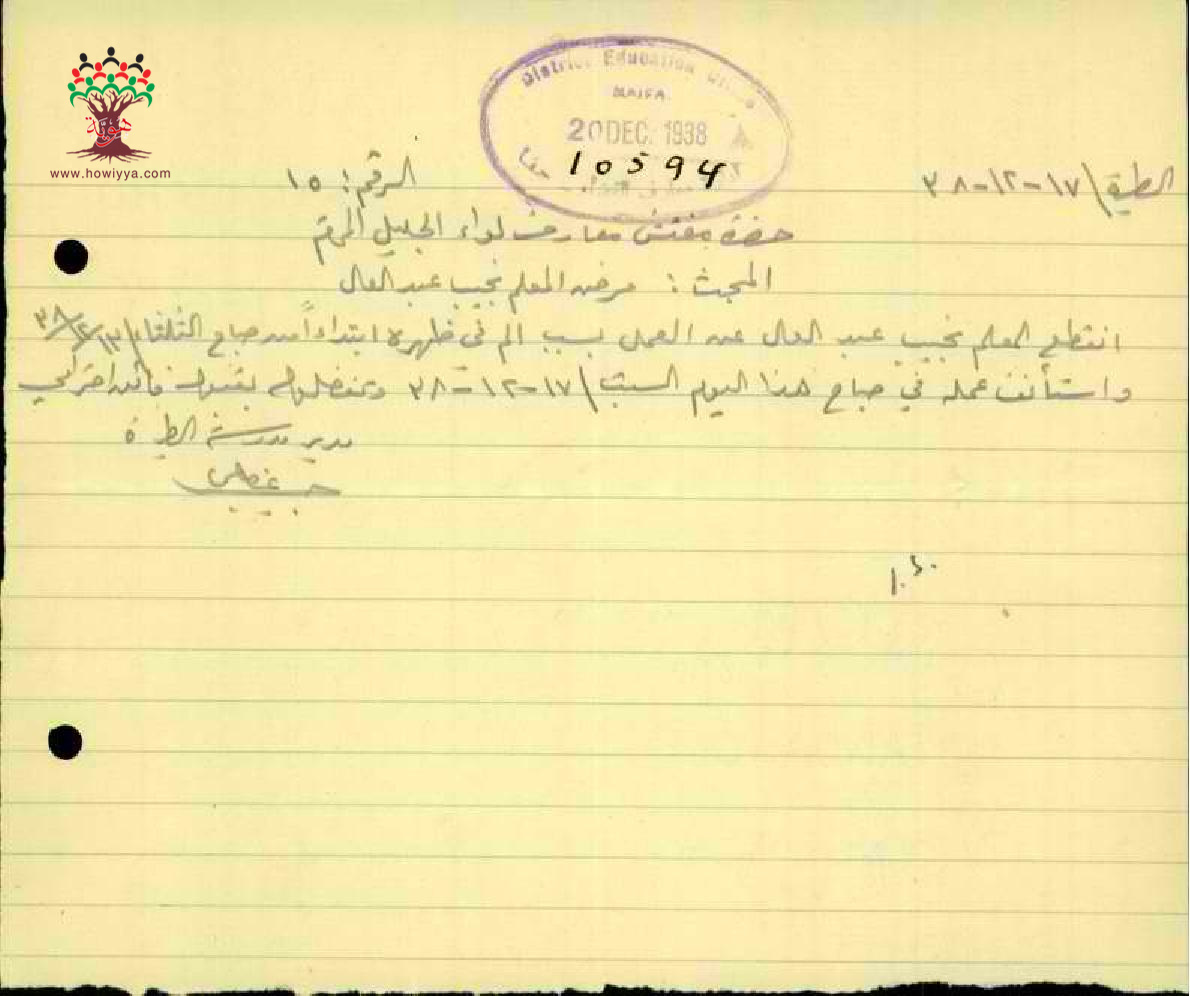 District Education Office
HAIFA
20 DEC. 1938
10594
حيفا
www.howiyya.com
الطيرة \ ١٧-١٢-٣٨
الرقم: ١٥
حضرة مفتش معارف لواء الجليل المحترم
المبحث: مرض المعلم نجيب عبد العال
انقطع المعلم نجيب عبد العال عن العمل بسبب الم في ظهره ابتداءاً من صباح الثلثاء \ ١٣/١٢/٣٨
واستأنف عمله في صباح هذا اليوم السبت \ ١٧-١٢-٣٨ وتفضلوا بقبول فائق احترامي
مدير مدرسة الطيرة